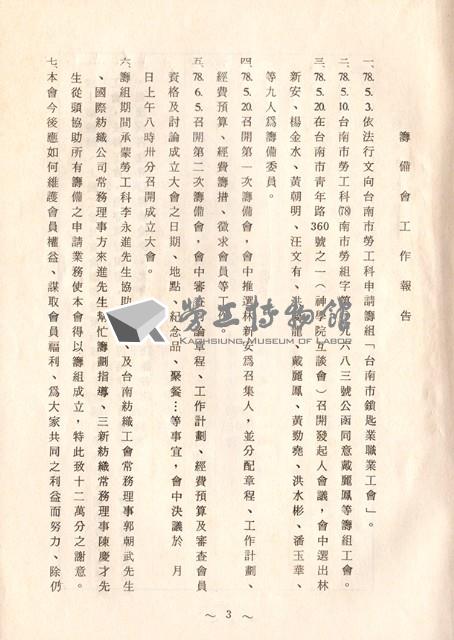 籌備會工作報告
一、78.5.3.依法行文向台南市勞工科申請籌組「台南市鎖匙業職業工會」。
二、78.5.10.台南市勞工科(78)南市勞組字第九六八三號公函同意戴麗鳳等籌組工會。
三、78.5.20.在台南市青年路360號之一(神學院互談會)召開發起人會議，會中選出林
新安、楊金水、黃朝明、汪文有、洪 龍、戴麗鳳、黃勁堯、洪水彬、潘玉華、
等九人為籌備委員。
四、78.5.20.召開第一次籌備會，會中推選林新安為召集人，並分配章程、工作計劃、
經費預算、經費籌措、徵求會員等工作
五、78.6.5.召開第二次籌備會，會中審查 論章程、工作計劃、經費預算及審查會員
資格及討論成立大會之日期、地點、紀念品、聚餐…等事宜，會中決議於 月
日上午八時卅分召開成立大會。
六、籌組期間承蒙勞工科李永進先生協助 、及台南紡織工會常務理事郭朝武先生
、國際紡織公司常務理事方來進先生幫忙籌劃指導、三新紡織常務理事陳慶才先
生從頭協助所有籌備之申請業務使本會得以籌組成立，特此致十二萬分之謝意。
七、本會今後應如何維護會員權益、謀取會員福利、為大家共同之利益而努力、除仍
勞工博物館
KAOHSIUNG MUSEUM OF LABOR
～3～